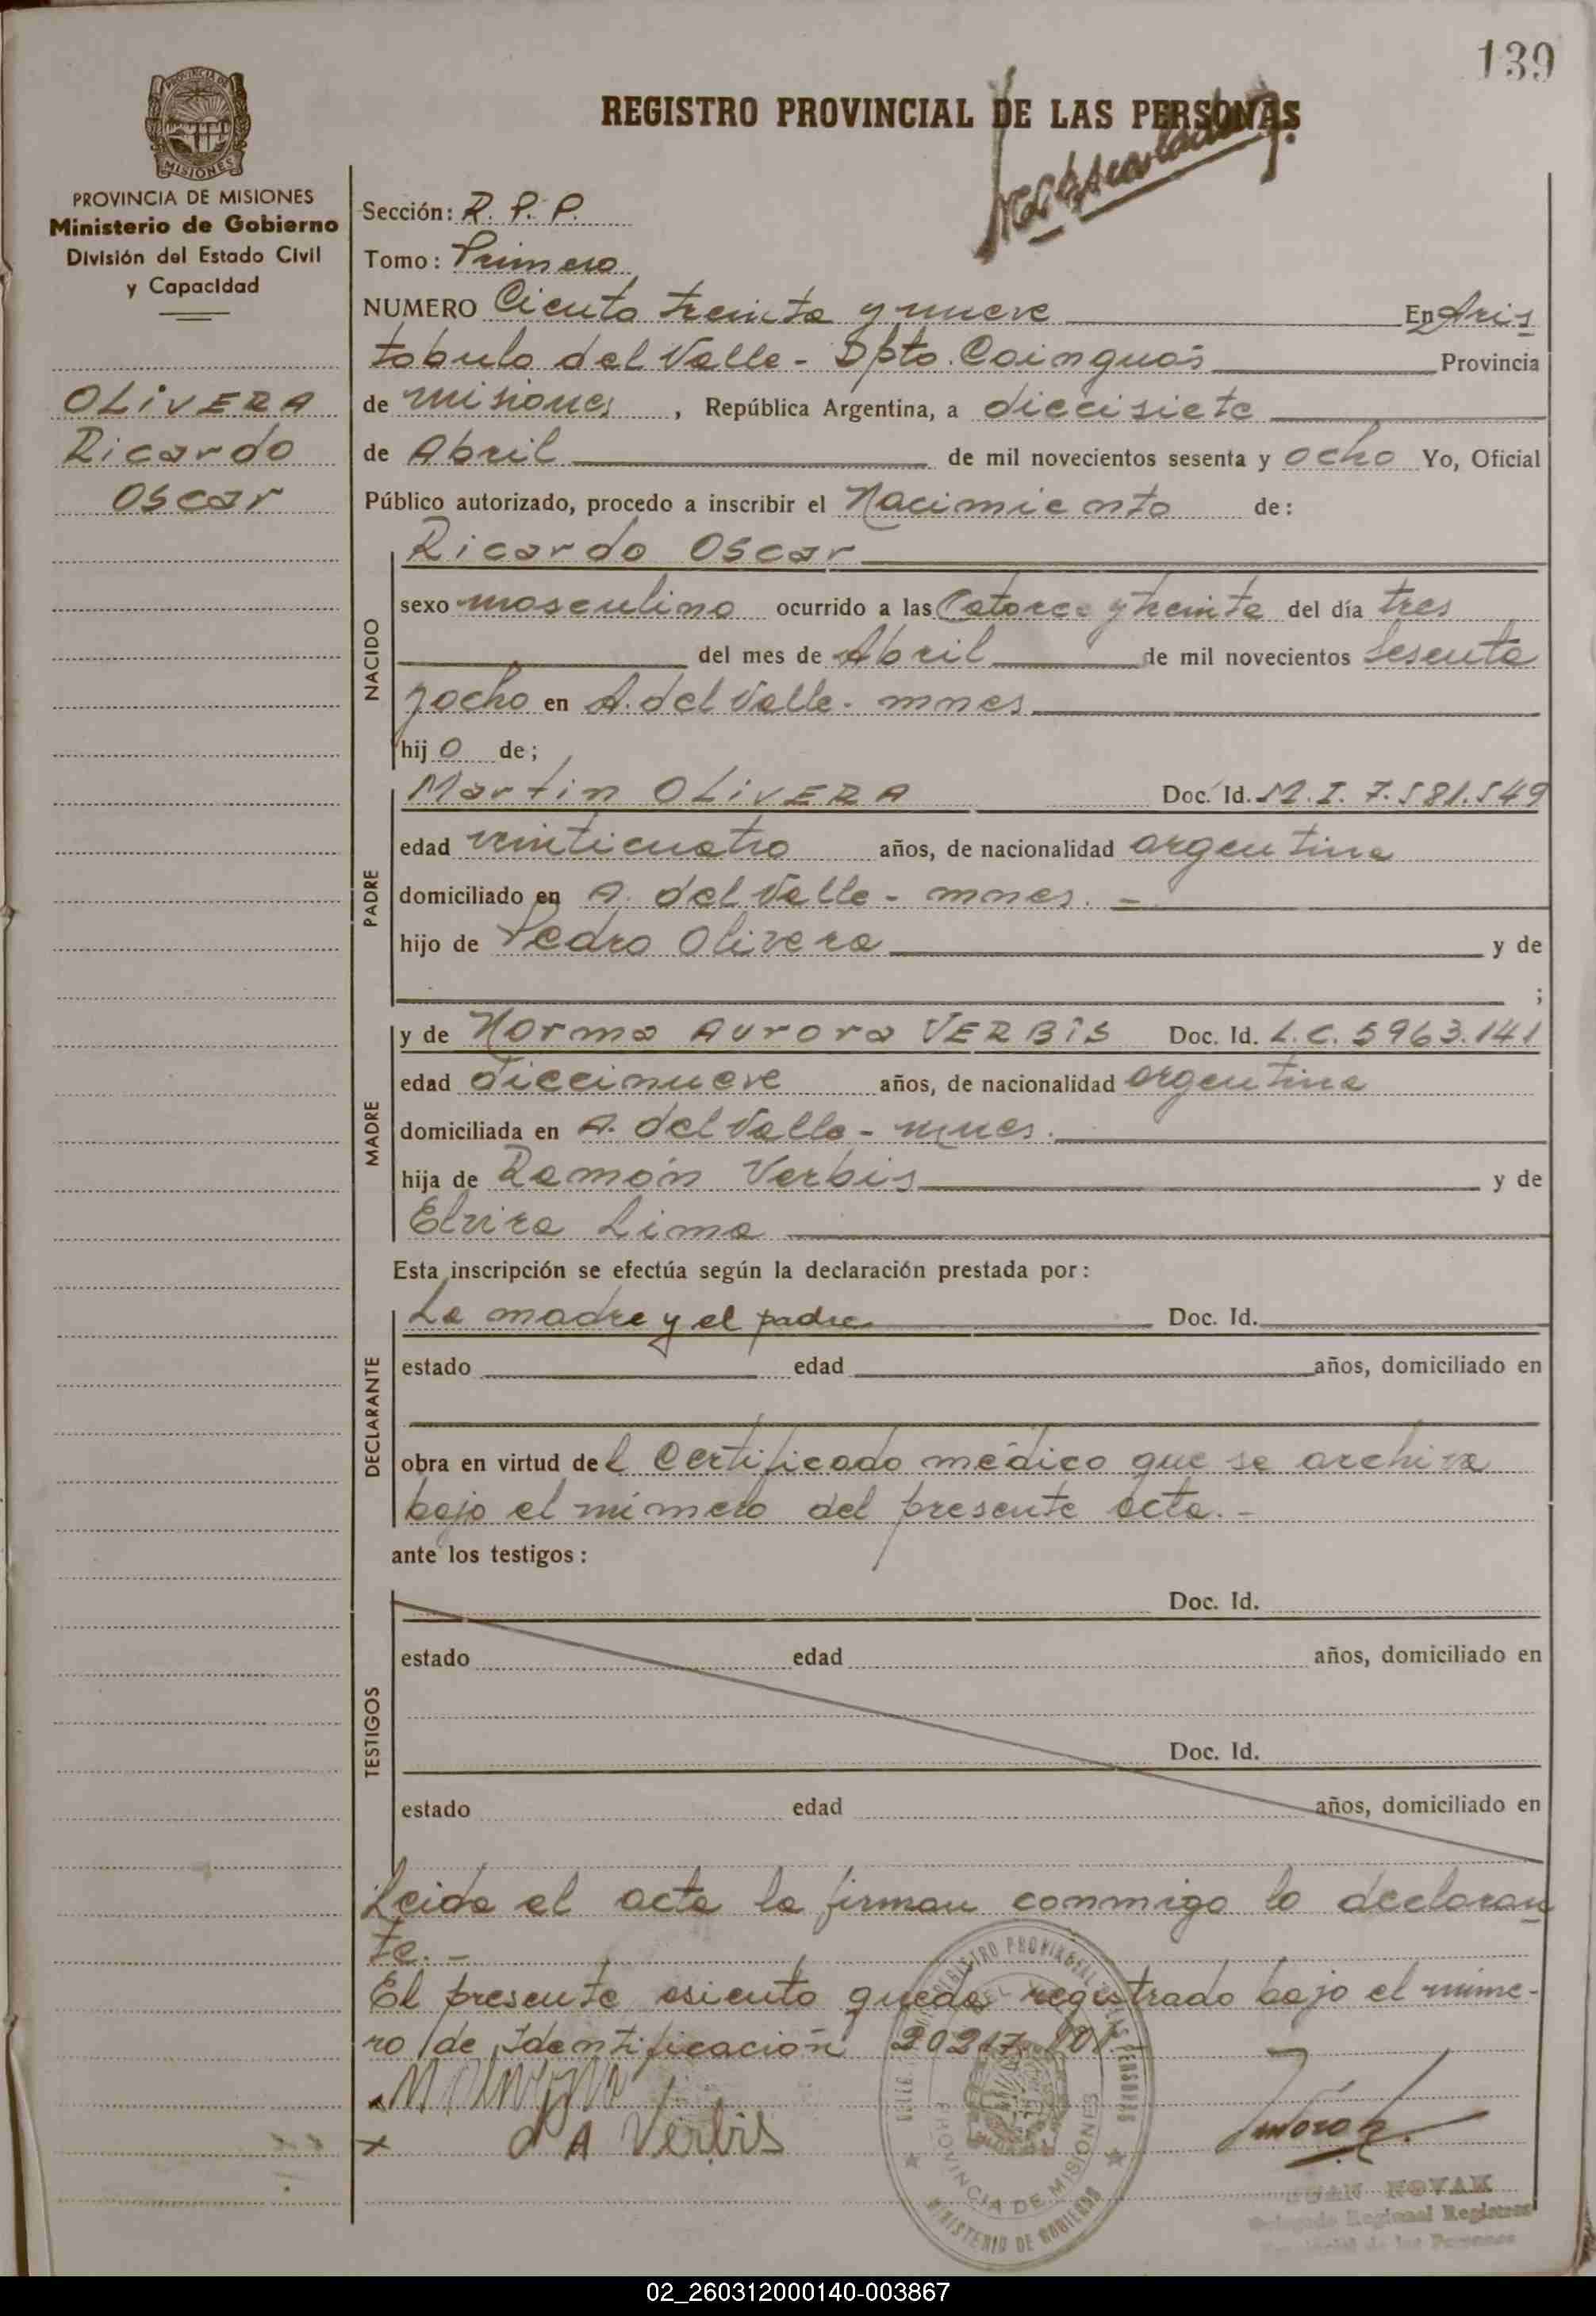 139
REGISTRO PROVINCIAL DE LAS PERSONAS
PROVINCIA DE MISIONES
Ministerio de Gobierno
División del Estado Civil
y Capacidad
OLIVERA
Ricardo
Oscar
Sección: R. P. P.
Tomo: Primero
NUMERO Ciento treinta y nueve En Aris
tobulo del Valle - Dpto. Cainguás Provincia
de misiones, República Argentina, a diecisiete
de Abril de mil novecientos sesenta y ocho Yo, Oficial
Público autorizado, procedo a inscribir el Nacimiento de:
NACIDO
Ricardo Oscar
sexo masculino ocurrido a las Catorce y treinta del día tres
del mes de Abril de mil novecientos Sesenta
y ocho en A. del Valle - mnes
hij o de;
PADRE
Martin OLIVERA Doc. Id. M.I. 7.581.549
edad veinticuatro años, de nacionalidad argentina
domiciliado en A. del Valle - mnes. -
hijo de Pedro Olivera y de
;
MADRE
y de Norma Aurora VERBIS Doc. Id. L.C. 5963.141
edad diecinueve años, de nacionalidad argentina
domiciliada en A. del Valle - mnes.
hija de Ramón Verbis y de
Elvira Lima
Esta inscripción se efectúa según la declaración prestada por:
DECLARANTE
La madre y el padre Doc. Id.
estado edad años, domiciliado en
obra en virtud del Certificado médico que se archiva
bajo el número del presente acta. -
ante los testigos:
TESTIGOS
Doc. Id.
estado edad años, domiciliado en
Doc. Id.
estado edad años, domiciliado en
Leida el acta la firman conmmigo lo declaran
te. -
El presente asiento queda registrado bajo el núme-
ro de Identificación
x A Verbis
PROVINCIA DE MISIONES
MINISTERIO DE GOBIERNO
JUAN NOVAK
Delegado Regional Registro
Provincial de las Personas
02_260312000140-003867